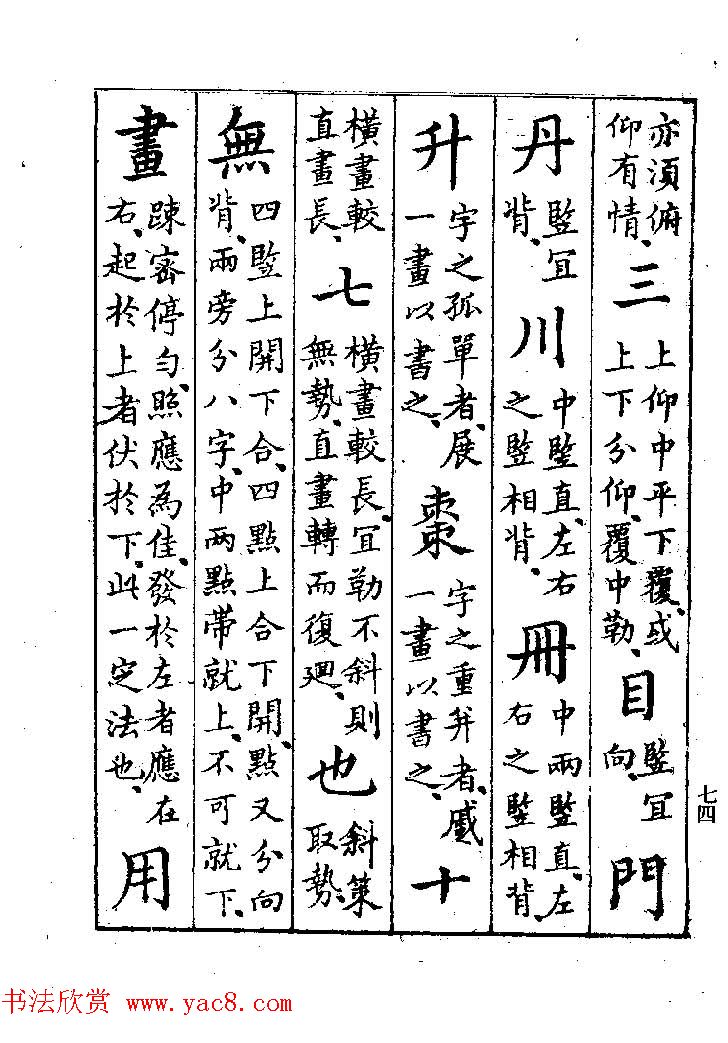 亦須俯
仰有情、
三
上仰中平下覆、或
上下分仰、覆中勒、
目
竪宜
向、
門
丹
竪宜
背、
川
中竪直、左右
之竪相背、
冊
中兩竪直、左
右之竪相背、
升
字之孤單者、展
一畫以書之、
棗
字之重并者、戚
一畫以書之、
十
橫畫較
直畫長、
七
橫畫較長、宜勒不斜則
無勢、直畫轉而復廻、
也
斜策
取勢、
無
四竪上開下合、四點上合下開、點又分向
背、兩旁分八字、中兩點帶就上、不可就下、
畫
疎密停勻、照應為佳、發於左者應在
右、起於上者伏於下、此一定法也、
用
七四
书法欣赏 www.yac8.com